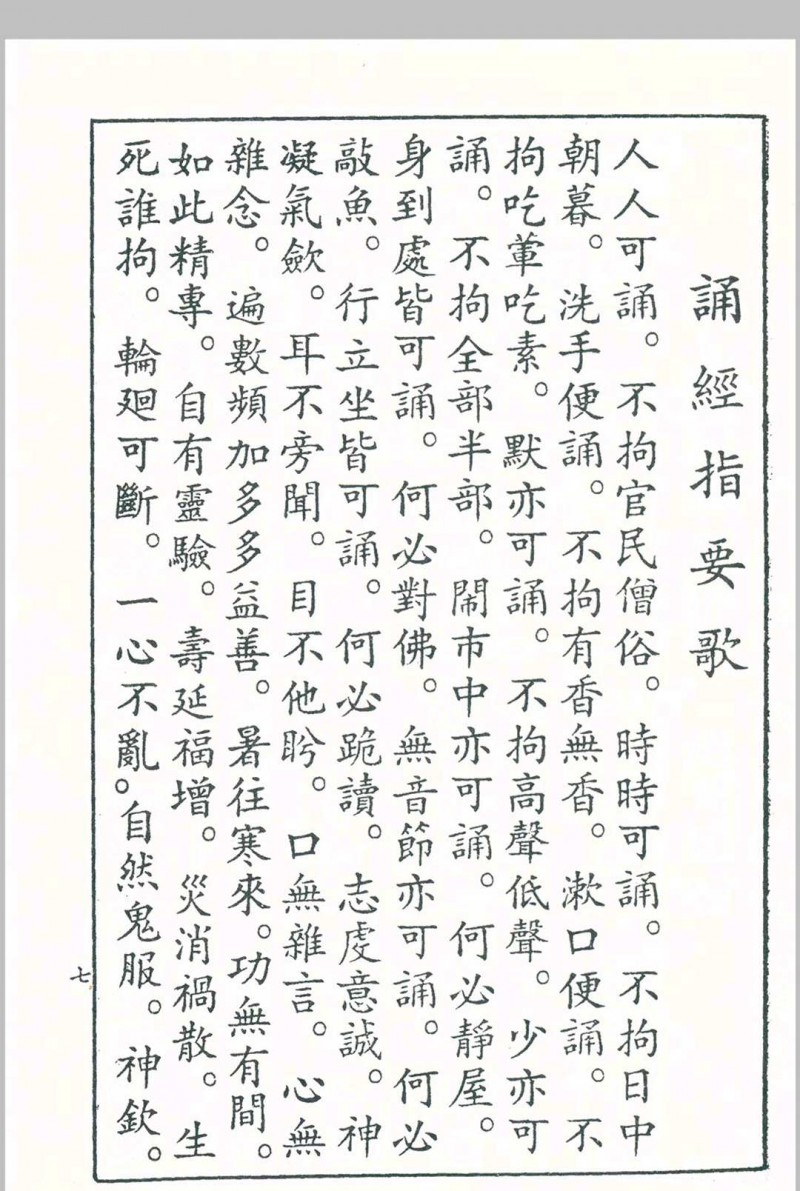 誦經指要歌
人人可誦。不拘官民僧俗。時時可誦。不拘日中
朝暮。洗手便誦。不拘有香無香。漱口便誦。不
拘吃葷吃素。默亦可誦。不拘高聲低聲。少亦可
誦。不拘全部半部。鬧市中亦可誦。何必靜屋。
身到處皆可誦。何必對佛。無音節亦可誦。何必
敲魚。行立坐皆可誦。何必跪讀。志虔意誠。神
凝氣歛。耳不旁聞。目不他盻。口無雜言。心無
雜念。遍數頻加多多益善。暑往寒來。功無有間。
如此精專。自有靈驗。壽延福增。災消禍散。生
死誰拘。輪廻可斷。一心不亂。自然鬼服。神欽。
七